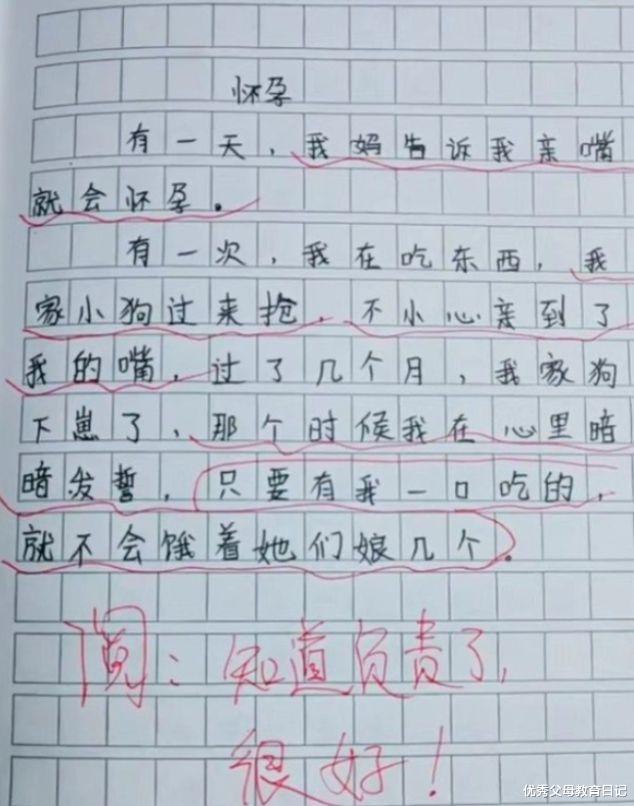 怀孕
有一天，我妈告诉我亲嘴
就会怀孕。
有一次，我在吃东西，我
家小狗过来抢，不小心亲到了
我的嘴，过了几个月，我家狗
下崽了、那个时候我在心里暗
暗发誓，只要有我一口吃的，
就不会饿着她们娘几个。
阅：知道负责了，
很好！
优秀父母教育日记